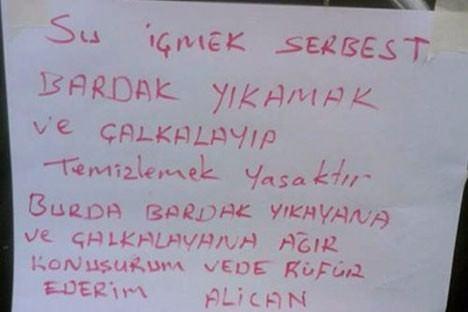 Su içmek SERBEST
BARDAK YIKAMAK
ve ÇALKALAYIP
Temizlemek Yasaktır
BURDA BARDAK YIKAYANA
ve ÇALKALAYANA AĞIR
KONUŞURUM VEDE KÜFÜR
EDERİM ALİCAN